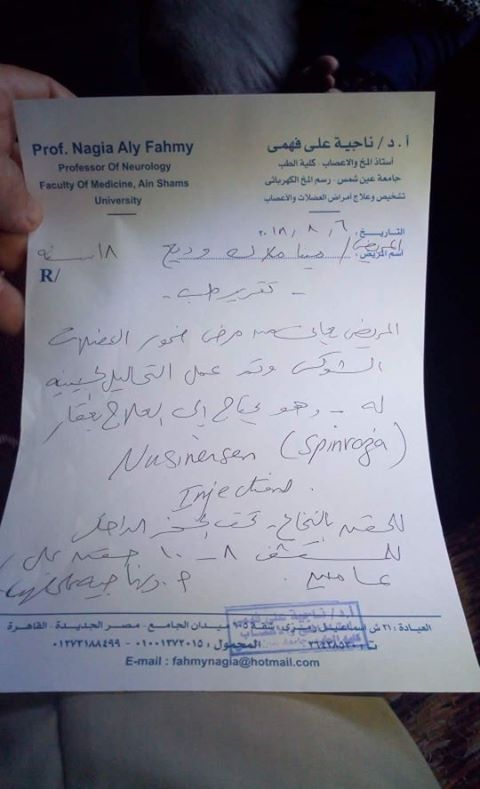 Prof. Nagia Aly Fahmy
Professor Of Neurology
Faculty Of Medicine, Ain Shams
University
أ.د/ ناجية على فهمى
أستاذ المخ والاعصاب - كلية الطب
جامعة عين شمس - رسم المخ الكهربائى
تشخيص وعلاج أمراض العضلات والاعصاب
التاريخ: ٦ / ٨ / ٢٠١٨
اسم المريض: المريض / مينا ملاك وديع ١٨ سنة
R/
- تقرير طبى -
المريض يعانى من مرض ضمور العضلات
الشوكى وتم عمل التحاليل الجينية
له - وهو يحتاج إلى العلاج بعقار
Nusinersen (Spinraza)
Injection.
للحقن بالنخاع - تحت الحجز الداخلى
للمستشفى ٨ - ١٠ حقنة على
عامين. أ.د/ ناجية على فهمى
العيادة : ٢١ ش اسماعيل رمزى، شقة ١٠٥ ميدان الجامع - مصر الجديدة - القاهرة
ت : ٢٦٤٣٨٥٣٠ المحمول : ٠١٠٠١٣٧٢٠١٥ - ٠١٢٧٣١٨٨٤٩٩
E-mail : fahmynagia@hotmail.com